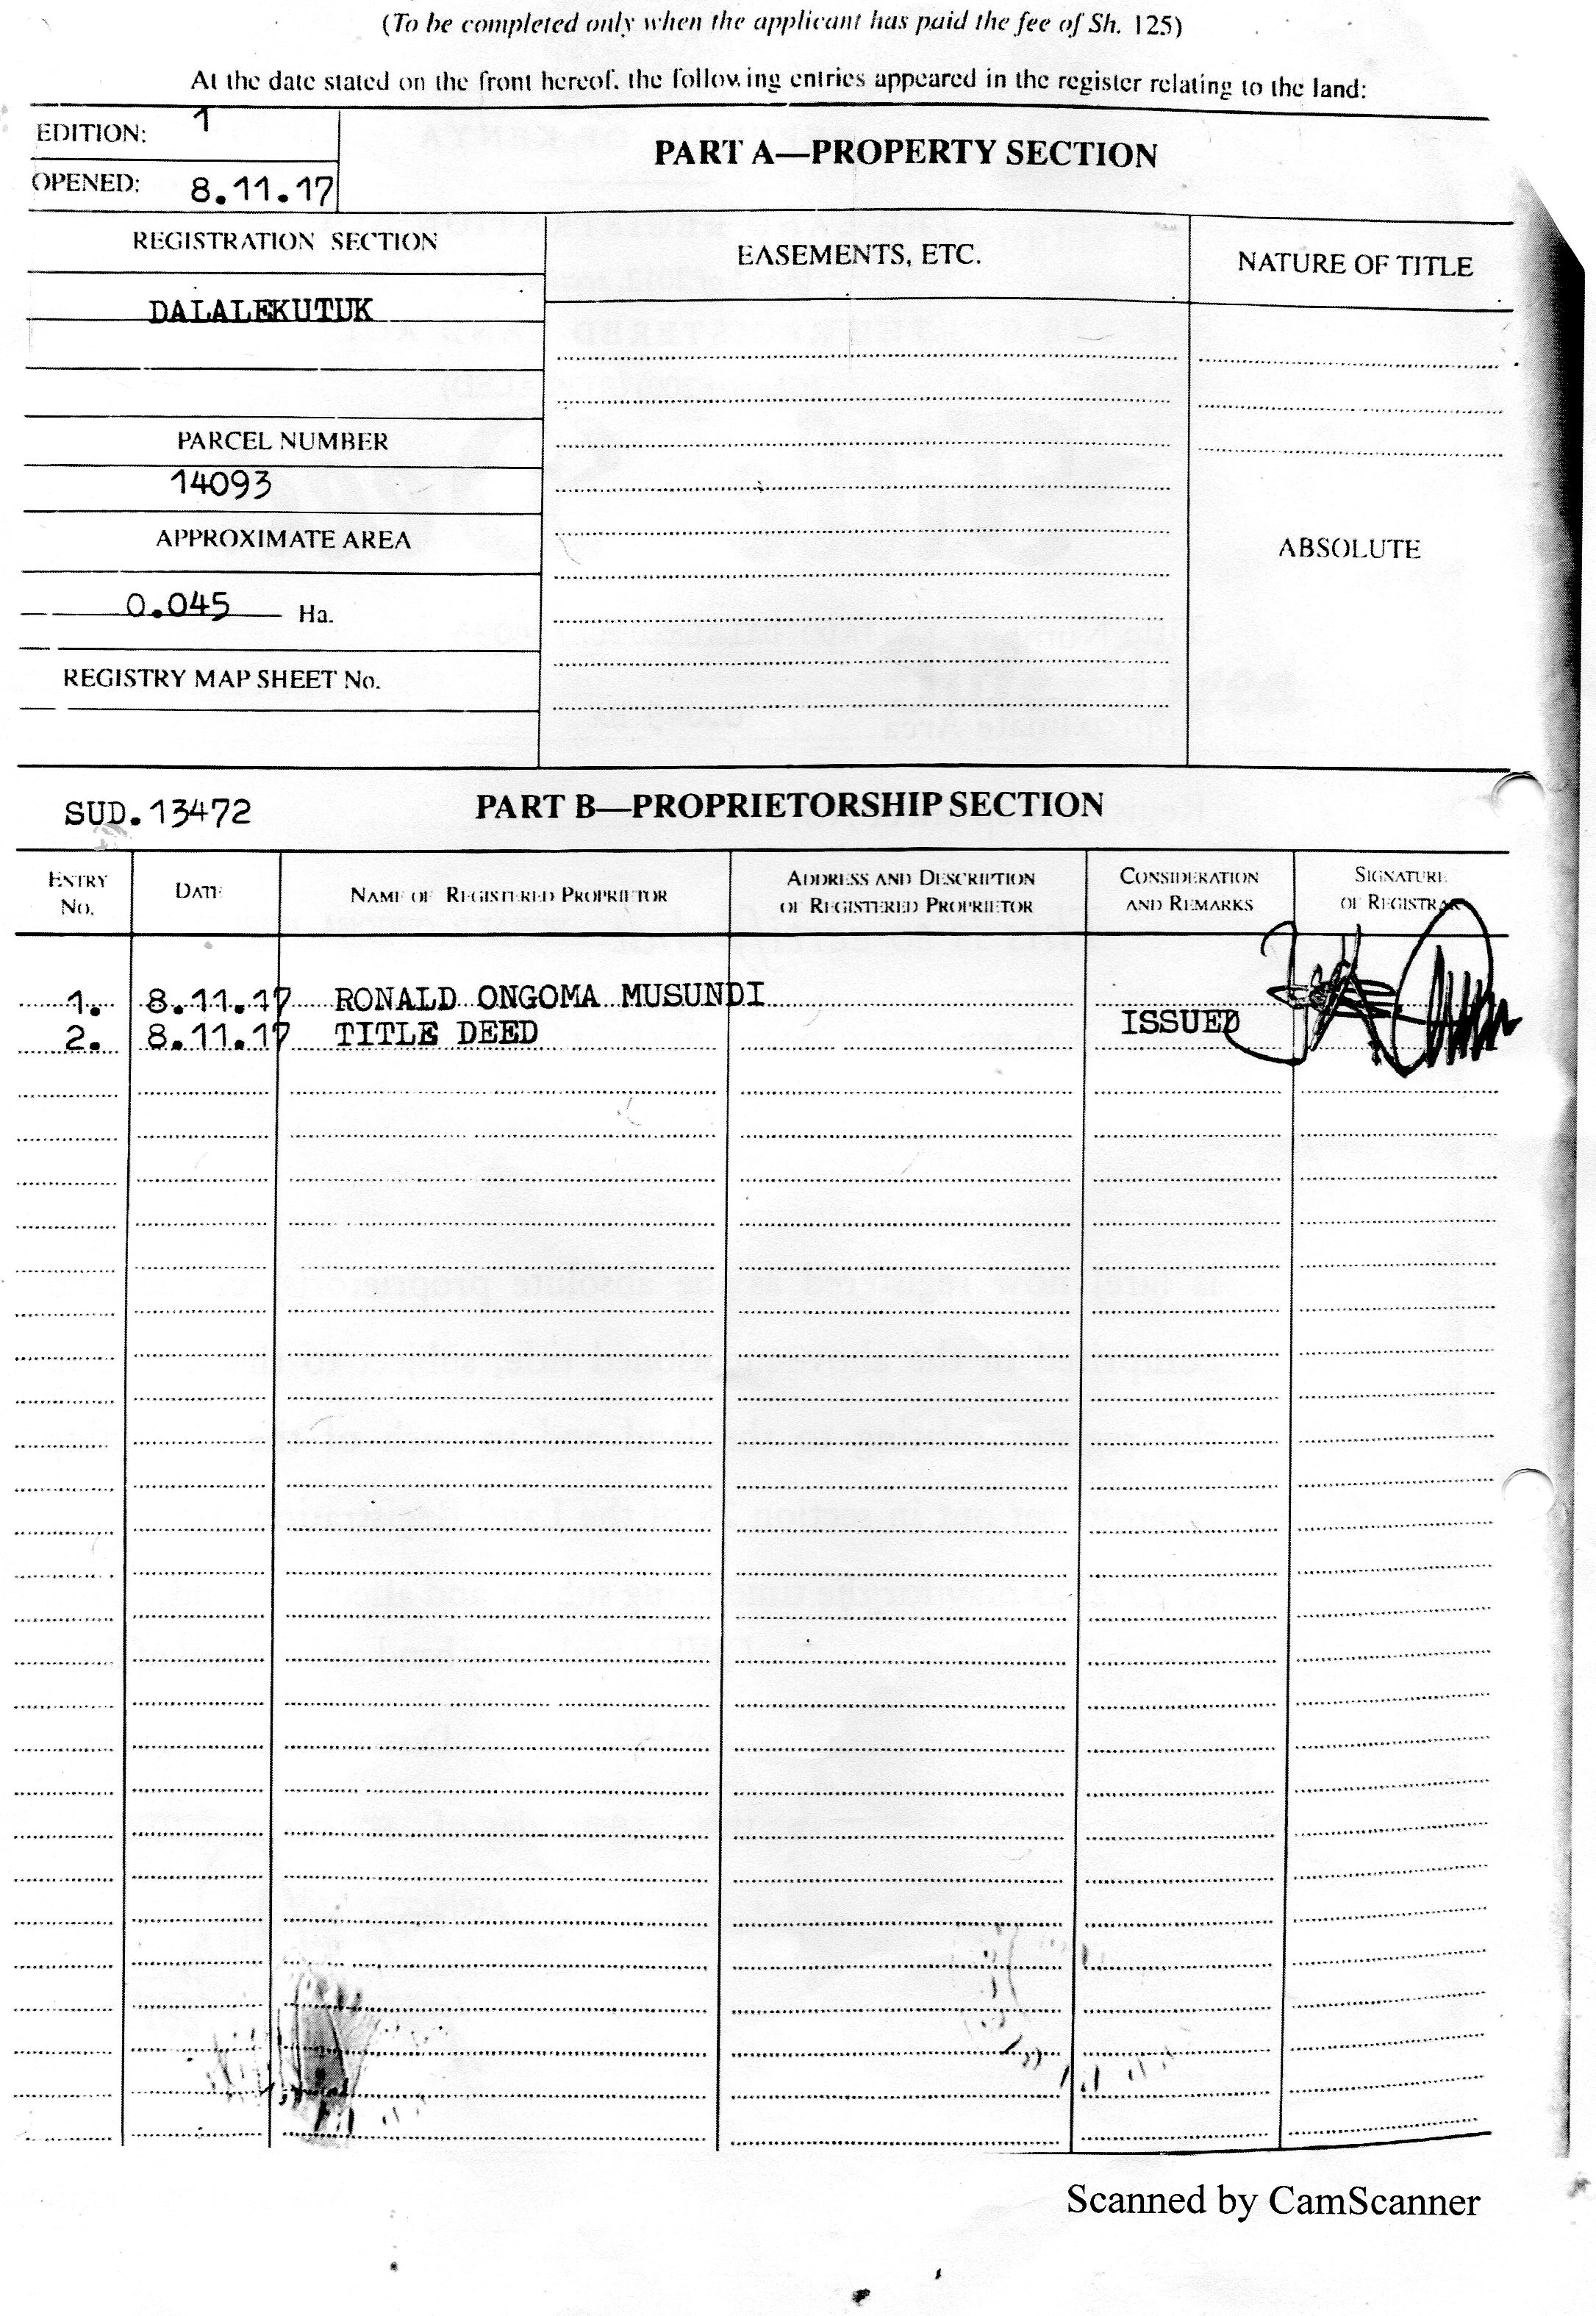 (To be completed only when the applicant has paid the fee of Sh. 125)
At the date stated on the front hereof, the following entries appeared in the register relating to the land:
EDITION: 1
OPENED: 8.11.17
PART A—PROPERTY SECTION
REGISTRATION SECTION
EASEMENTS, ETC.
NATURE OF TITLE
DALALEKUTUK
PARCEL NUMBER
14093
APPROXIMATE AREA
ABSOLUTE
0.045 Ha.
REGISTRY MAP SHEET No.
SUD.13472
PART B—PROPRIETORSHIP SECTION
ENTRY No.
DATE
NAME OF REGISTERED PROPRIETOR
ADDRESS AND DESCRIPTION OF REGISTERED PROPRIETOR
CONSIDERATION AND REMARKS
SIGNATURE OF REGISTRAR
1. 8.11.17 RONALD ONGOMA MUSUNDI
2. 8.11.17 TITLE DEED ISSUED
Scanned by CamScanner